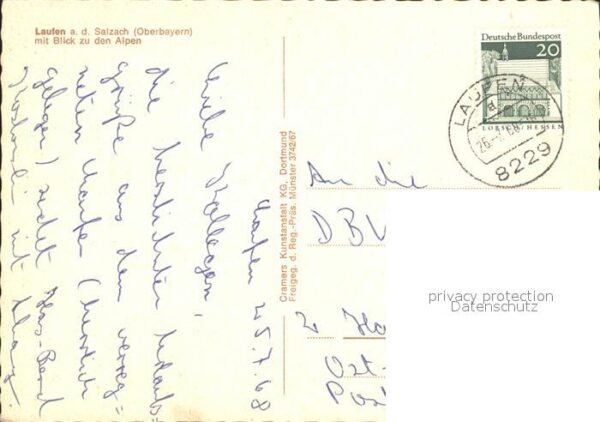 Laufen a. d. Salzach (Oberbayern)
mit Blick zu den Alpen
Laufen 25.7.68
Liebe Kollegen,
die herzlichsten Urlaubs=
grüße aus dem verreg=
neten Laufen (herrlich
gelegen) sendet
mit
Cramers Kunstanstalt KG, Dortmund
Freigeg. d. Reg.-Präs. Münster 3742/67
Deutsche Bundespost
20
LORSCH/HESSEN
LAUFEN
8229
An die
DBV
2 Ha
Ost-
Post
privacy protection
Datenschutz